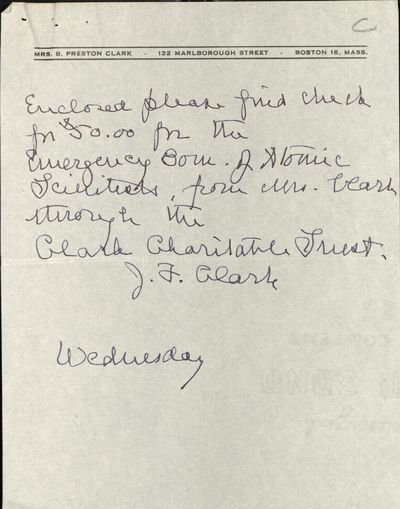 C
MRS. B. PRESTON CLARK - 132 MARLBOROUGH STREET - BOSTON 16, MASS.
Enclosed please find check
for $50.00 for the
Emergency Com. of Atomic
Scientists, from Mrs. Clark
through the
Clark Charitable Trust.
J. F. Clark
Wednesday